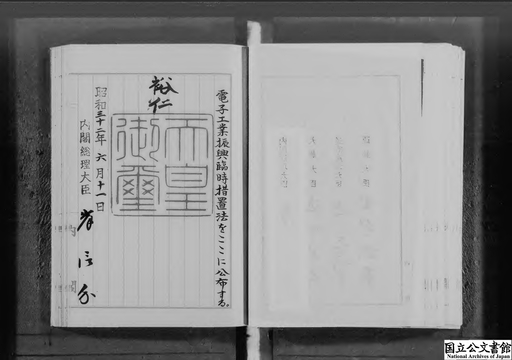 電子工業振興臨時措置法をここに公布する。
裕仁
天皇
御璽
昭和三十二年六月十一日
内閣総理大臣
岸信介
国立公文書館
National Archives of Japan